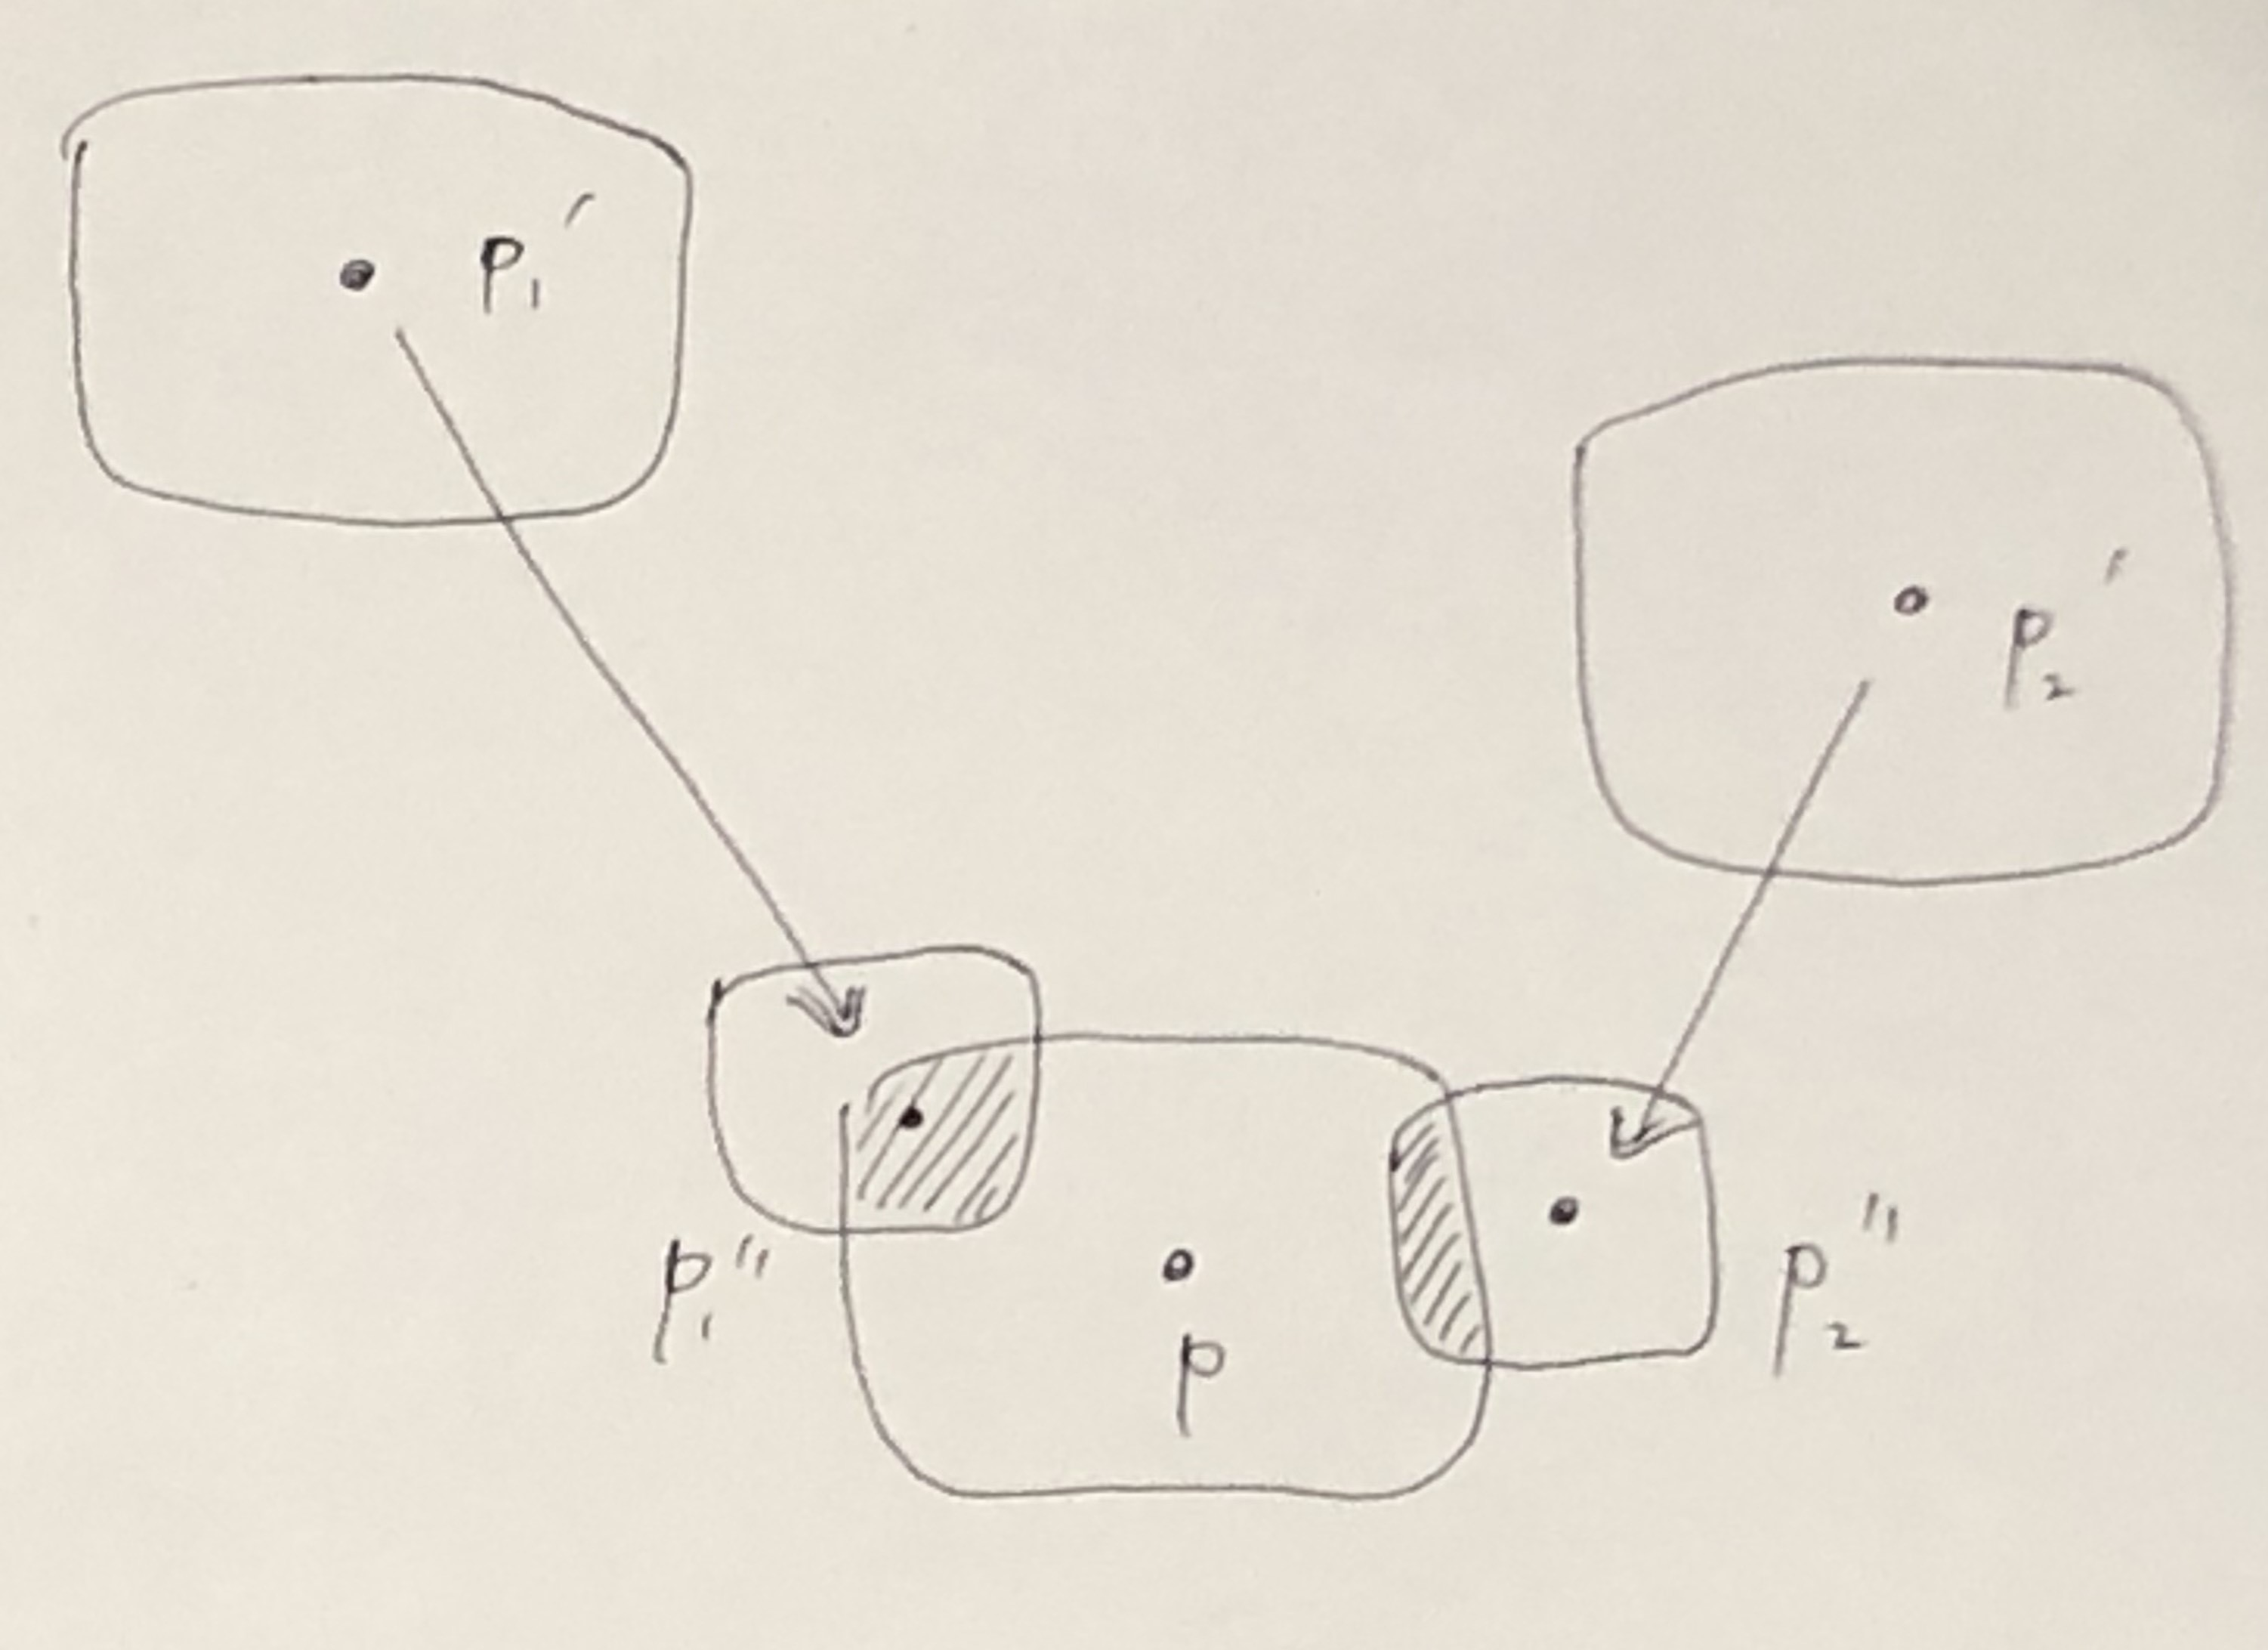 p₁′
p₂′
p₁″
p
p₂″